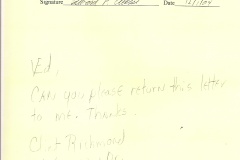 Signature Date 12/1/04
Ed,
Can you please return this letter
to me. Thanks.
Clint Richmond